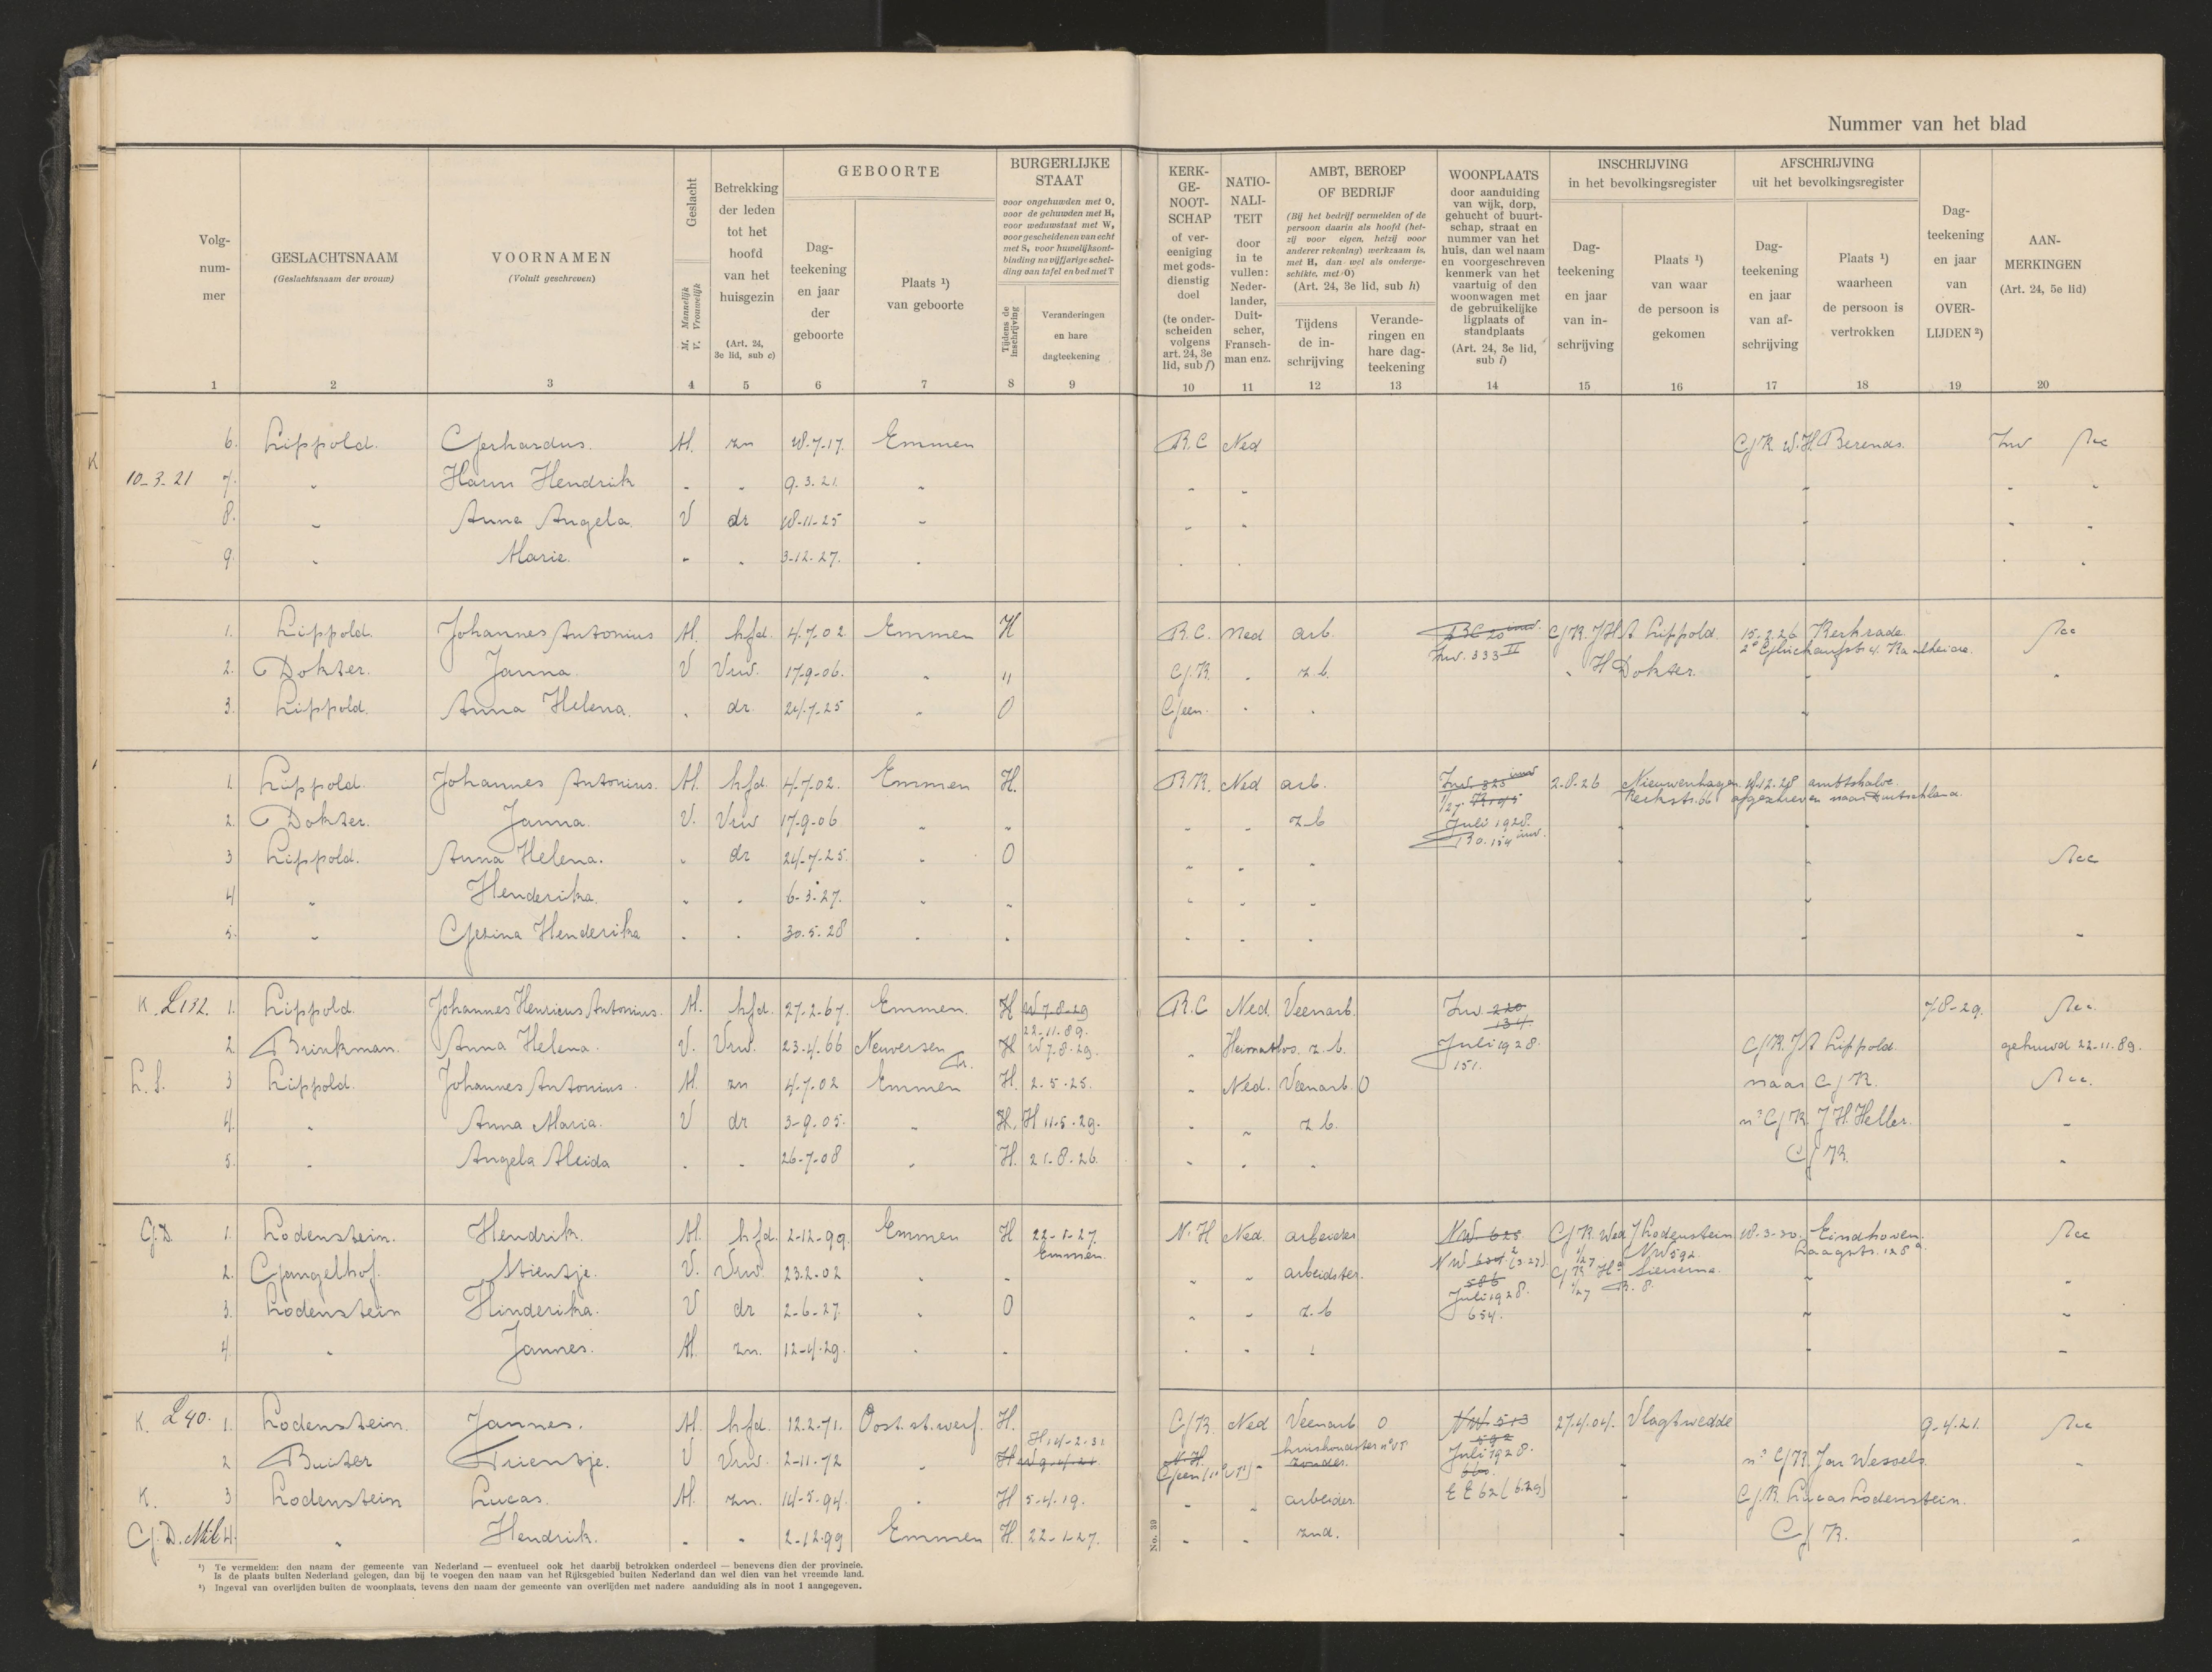 Nummer van het blad
Volg-
num-
mer
GESLACHTSNAAM
(Geslachtsnaam der vrouw)
VOORNAMEN
(Voluit geschreven)
Geslacht
M. Mannelijk
V. Vrouwelijk
Betrekking
der leden
tot het
hoofd
van het
huisgezin
(Art. 24,
3e lid, sub c)
GEBOORTE
Dag-
teekening
en jaar
der
geboorte
Plaats ¹)
van geboorte
BURGERLIJKE
STAAT
voor ongehuwden met O,
voor de gehuwden met H,
voor weduwstaat met W,
voor gescheidenen van echt
met S, voor huwelijksont-
binding na vijfjarige schei-
ding van tafel en bed met T
Tijdens de
inschrijving
Veranderingen
en hare
dagteekening
KERK-
GE-
NOOT-
SCHAP
of ver-
eeniging
met gods-
dienstig
doel
(te onder-
scheiden
volgens
art. 24, 3e
lid, sub f)
NATIO-
NALI-
TEIT
door
in te
vullen:
Neder-
lander,
Duit-
scher,
Fransch-
man enz.
AMBT, BEROEP
OF BEDRIJF
(Bij het bedrijf vermelden of de
persoon daarin als hoofd (het-
zij voor eigen, hetzij voor
anderer rekening) werkzaam is,
met H, dan wel als onderge-
schikte, met O)
(Art. 24, 3e lid, sub h)
Tijdens
de in-
schrijving
Verande-
ringen en
hare dag-
teekening
WOONPLAATS
door aanduiding
van wijk, dorp,
gehucht of buurt-
schap, straat en
nummer van het
huis, dan wel naam
en voorgeschreven
kenmerk van het
vaartuig of den
woonwagen met
de gebruikelijke
ligplaats of
standplaats
(Art. 24, 3e lid,
sub i)
INSCHRIJVING
in het bevolkingsregister
Dag-
teekening
en jaar
van in-
schrijving
Plaats ¹)
van waar
de persoon is
gekomen
AFSCHRIJVING
uit het bevolkingsregister
Dag-
teekening
en jaar
van af-
schrijving
Plaats ¹)
waarheen
de persoon is
vertrokken
Dag-
teekening
en jaar
van
OVER-
LIJDEN ²)
AAN-
MERKINGEN
(Art. 24, 5e lid)
1 2 3 4 5 6 7 8 9 10 11 12 13 14 15 16 17 18 19 20
6. Lippold. Gerhardus. M. zn 18.7.17. Emmen R.C Ned G/K. W.H. Berends.
K
10-3-21 7. " Harm Hendrik " " 9.3.21. " " "
8. " Anna Angela. V dr 18-11-25 " " "
9. " Marie. " " 3-12-27. " " "
1. Lippold. Johannes Antonius M. hfd. 4.7.02. Emmen H R.C. Ned arb. G/K. J H A Lippold. 15.2.26 Kerkrade.
Inw. 333 II
2. Dokter. Janna. V Vrw. 17-9-06. " " G/K. " z.b. " H Dokter. "
3. Lippold. Anna Helena. " dr. 24.7.25 " O Geen. " "
1. Lippold. Johannes Antonius. M. hfd. 4-7.02. Emmen H. R.K. Ned arb. 2-8-26 Nieuwenhagen 18.12.28 ambtshalve
Kerkstr. 66 afgeschreven naar Duitschland.
2. Dokter. Janna. V. Vrw 17-9-06. " " " " z-b Juli 1928.
3 Lippold. Anna Helena. " dr 24-7-25. " O " " "
4 " Henderika. " " 6-3-27. " " " " "
5. " Gezina Henderika " " 30.5.28 " " " " "
K. L132. 1. Lippold. Johannes Henricus Antonius. M. hfd. 27-2-67. Emmen. H W 7.8-29 R.C Ned. Veenarb. Inw. 220 7.8-29.
134.
22-11.89.
2. Brinkman. Anna Helena. V. Vrw. 23-4.66 Neuversen H W 7.8.29. " Heimatlos. z.b. Juli 1928. G/K. J A Lippold. gehuwd 22-11.89.
151.
L.L. 3 Lippold. Johannes Antonius. M. zn 4.7.02 Emmen H. 2.5.25. " Ned. Veenarb. O naar G/K.
4. " Anna Maria. V dr 3-9.05. " H. H 11-5-29. " " z b. G/K J H. Heller. "
5. " Angela Aleida " " 26-7-08 " H. 21-8-26. " " " G/K. "
G.D. 1. Lodenstein. Hendrik. M. hfd. 2-12-99. Emmen H 22-1-27. N.H Ned. arbeider NW. 625 G/K. Wed J Lodenstein 18.3-30. Eindhoven.
Emmen. 1/27 NW 592. Laagstr. 128
2. Gangelhof. Stientje. V. Vrw. 23.2-02 " " " " arbeidster. 586 "
Juli 1928. 1/27 B. 8.
3. Lodenstein Hinderika. V dr 2-6-27. " O " " z.b 654. " "
4. " Jannes. M. zn. 12-4.29. " " " " " " "
K. L40. 1. Lodenstein. Jannes. M. hfd. 12.2-71. Oost.st.werf. H. G/K Ned Veenarb O NW. 513 27.4.04. Vlagtwedde 9-4.21.
592
2 Buiter Trientje. V Vrw. 2-11-72 " H huishoudster Juli 1928. G/K. Jan Wessels. "
zonder.
K. 3 Lodenstein Lucas. M. zn. 14-5-94. " H 5.4.19. " " arbeider. G/K. Lucas Lodenstein.
G.D. Mil 4. " Hendrik. " " 2-12.99 Emmen H. 22-1-27. " " znd. " G/K. "
No. 39
¹) Te vermelden: den naam der gemeente van Nederland — eventueel ook het daarbij betrokken onderdeel — benevens dien der provincie.
Is de plaats buiten Nederland gelegen, dan bij te voegen den naam van het Rijksgebied buiten Nederland dan wel dien van het vreemde land.
²) Ingeval van overlijden buiten de woonplaats, tevens den naam der gemeente van overlijden met nadere aanduiding als in noot 1 aangegeven.